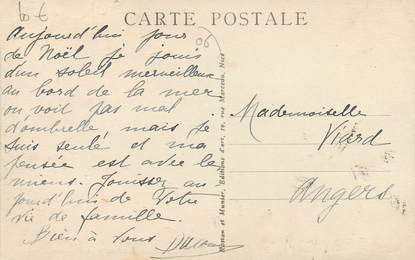 CARTE POSTALE
Aujourd'hui jour
de Noël je jouis
d'un soleil merveilleux
au bord de la mer
on voit pas mal
d'ombrelle mais je
suis seule et ma
pensée est avec les
miens. Jouissez au
jourd'hui de votre
vie de famille.
Bien à vous
Mademoiselle
Viard
Angers
06
Munier, Éditions d'art, 19, rue Marceau, Nice